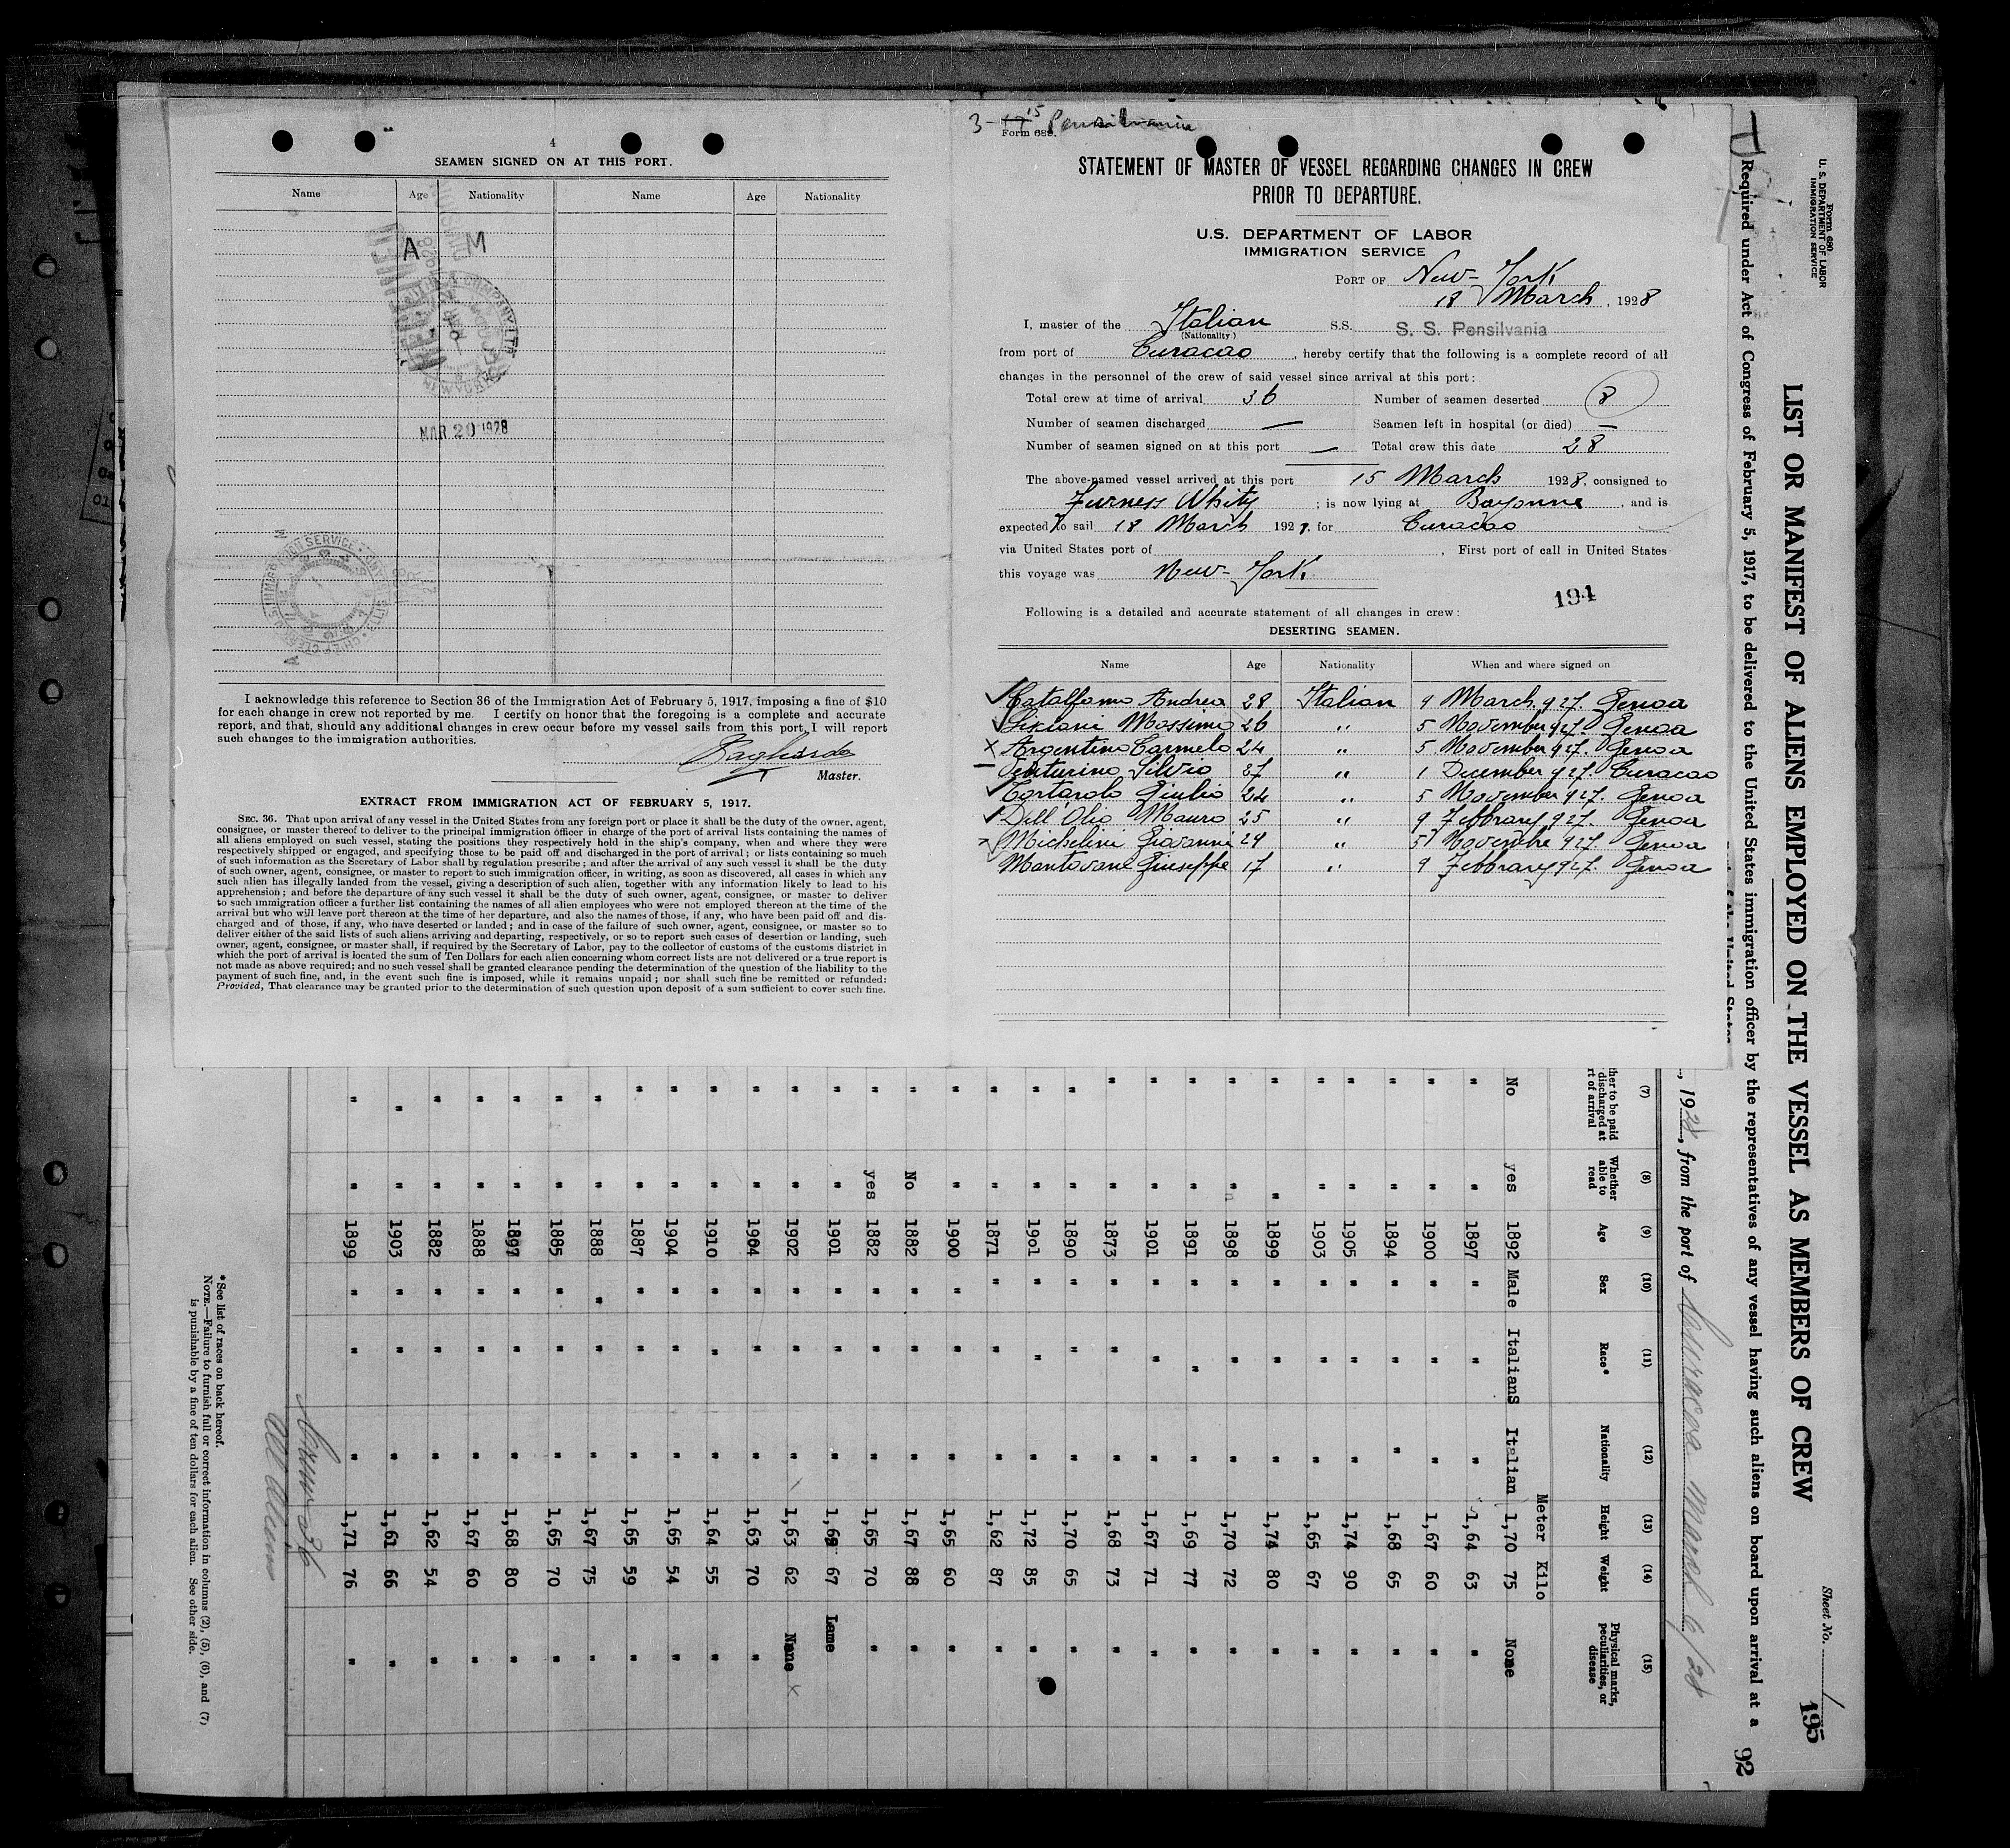 4
SEAMEN SIGNED ON AT THIS PORT.
Name Age Nationality Name Age Nationality
A M
MAR 20 1928
I acknowledge this reference to Section 36 of the Immigration Act of February 5, 1917, imposing a fine of $10
for each change in crew not reported by me. I certify on honor that the foregoing is a complete and accurate
report, and that, should any additional changes in crew occur before my vessel sails from this port, I will report
such changes to the immigration authorities.
Master.
EXTRACT FROM IMMIGRATION ACT OF FEBRUARY 5, 1917.
SEC. 36. That upon arrival of any vessel in the United States from any foreign port or place it shall be the duty of the owner, agent,
consignee, or master thereof to deliver to the principal immigration officer in charge of the port of arrival lists containing the names of
all aliens employed on such vessel, stating the positions they respectively hold in the ship's company, when and where they were
respectively shipped or engaged, and specifying those to be paid off and discharged in the port of arrival; or lists containing so much
of such information as the Secretary of Labor shall by regulation prescribe; and after the arrival of any such vessel it shall be the duty
of such owner, agent, consignee, or master to report to such immigration officer, in writing, as soon as discovered, all cases in which any
such alien has illegally landed from the vessel, giving a description of such alien, together with any information likely to lead to his
apprehension; and before the departure of any such vessel it shall be the duty of such owner, agent, consignee, or master to deliver
to such immigration officer a further list containing the names of all alien employees who were not employed thereon at the time of the
arrival but who will leave port thereon at the time of her departure, and also the names of those, if any, who have been paid off and dis-
charged and of those, if any, who have deserted or landed; and in case of the failure of such owner, agent, consignee, or master so to
deliver either of the said lists of such aliens arriving and departing, respectively, or so to report such cases of desertion or landing, such
owner, agent, consignee, or master shall, if required by the Secretary of Labor, pay to the collector of customs of the customs district in
which the port of arrival is located the sum of Ten Dollars for each alien concerning whom correct lists are not delivered or a true report is
not made as above required; and no such vessel shall be granted clearance pending the determination of the question of the liability to the
payment of such fine, and, in the event such fine is imposed, while it remains unpaid; nor shall such fine be remitted or refunded:
Provided, That clearance may be granted prior to the determination of such question upon deposit of a sum sufficient to cover such fine.
3-15 Pensilvania
Form 689.
STATEMENT OF MASTER OF VESSEL REGARDING CHANGES IN CREW
PRIOR TO DEPARTURE.
U.S. DEPARTMENT OF LABOR
IMMIGRATION SERVICE
PORT OF New-York
18 March, 1928
I, master of the Italian S.S. S. S. Pensilvania
(Nationality.)
from port of Curacao, hereby certify that the following is a complete record of all
changes in the personnel of the crew of said vessel since arrival at this port:
Total crew at time of arrival 36 Number of seamen deserted 8
Number of seamen discharged — Seamen left in hospital (or died) —
Number of seamen signed on at this port — Total crew this date 28
The above-named vessel arrived at this port 15 March 1928, consigned to
Furness Whity; is now lying at Bayonne, and is
expected to sail 18 March 1928, for Curacao
via United States port of , First port of call in United States
this voyage was New-York
194
Following is a detailed and accurate statement of all changes in crew:
DESERTING SEAMEN.
Name Age Nationality When and where signed on
Catalfamo Andrea 28 Italian 9 March 927. Genoa
Massimo 26 " 5 November 927. Genoa
Argentino Carmelo 24 " 5 November 927. Genoa
Venturino Silvio 37 " 1 December 927. Curacao
Cortarolo Giulio 24 " 5 November 927. Genoa
Dell'Olio Mauro 25 " 9 Febbrary 927. Genoa
Michelini Giovanni 29 " 5 Novembre 927. Genoa
Mantovani Giuseppe 17 " 9 Febbrary 927. Genoa
Form 680
U. S. DEPARTMENT OF LABOR
IMMIGRATION SERVICE
Sheet No. 1
195
LIST OR MANIFEST OF ALIENS EMPLOYED ON THE VESSEL AS MEMBERS OF CREW
92
Required under Act of Congress of February 5, 1917, to be delivered to the United States immigration officer by the representatives of any vessel having such aliens on board upon arrival at a
, 1928, from the port of March 6/28
(7) (8) (9) (10) (11) (12) (13) (14) (15)
ther to be paid discharged at rt of arrival
Whether able to read
Age Sex Race* Nationality Height Weight
Physical marks, peculiarities, or disease
Meter Kilo
No yes 1892 Male Italians Italian 1,70 75 None
" " 1897 " " " 1,64 63 "
" " 1900 " " " 1,67 60 "
" " 1894 " " " 1,68 65 "
" " 1905 " " " 1,74 90 "
" " 1903 " " " 1,65 67 "
" " 1899 " " " 1,74 80 "
" " 1898 " " " 1,70 72 "
" " 1891 " " " 1,69 77 "
" " 1901 " " " 1,67 71 "
" " 1873 " " " 1,68 73 "
" " 1890 " " " 1,70 65 "
" " 1901 " " " 1,72 85 "
" " 1871 " " " 1,62 87 "
" " 1900 " " " 1,65 60 "
" No 1882 " " " 1,67 88 "
" yes 1882 " " " 1,65 70 "
" " 1901 " " " 67 Lame
" " 1902 " " " 1,63 62 None x
" " 1904 " " " 1,63 70 "
" " 1910 " " " 1,64 55 "
" " 1904 " " " 1,65 54 "
" " 1887 " " " 1,65 59 "
" " 1888 " " " 1,67 75 "
" " 1885 " " " 1,65 70 "
" " 1897 " " " 1,68 80 "
" " 1888 " " " 1,67 60 "
" " 1882 " " " 1,62 54 "
" " 1903 " " " 1,61 66 "
" " 1899 " " " 1,71 76 "
Crew 36
All aliens
*See list of races on back hereof.
NOTE.—Failure to furnish full or correct information in columns (2), (5), (6), and (7)
is punishable by a fine of ten dollars for each alien. See other side.